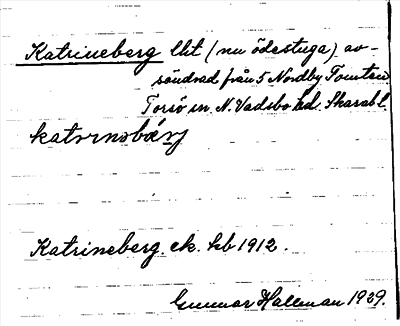 Katrineberg lht (nu ödestuga) av-
söndrad från 5 Nordby Tomten
Torsö sn N. Vadsbo hd. Skarab l.
katrinəbærj
Katrineberg. ek. kb 1912.
Gunnar Hallman 1929.